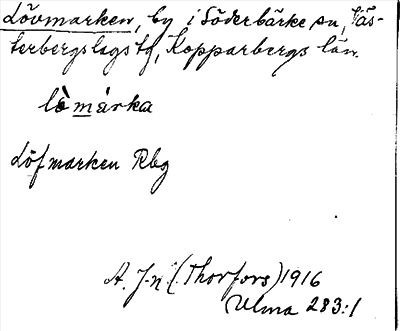 Lövmarken, by i Söderbärke sn, Väs-
terbergslags tg, Kopparbergs län.
lò̀márka
Löfmarken Rbg
A. J-n (Thorfors) 1916
Ulma 283:1